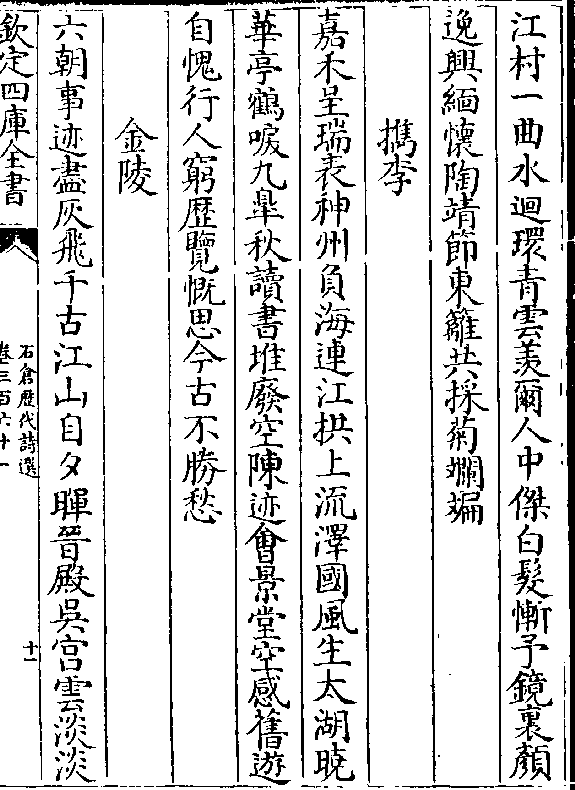 江村一曲水迴環青雲羨爾人中傑白髮慚予鏡裏顏
逸興緬懷陶靖節東籬共採菊斕斒
檇李
嘉禾呈瑞表神州負海連江拱上流澤國風生太湖曉
華亭鶴唳九臯秋讀書堆廢空陳迹會景堂空感舊遊
自愧行人窮歴覽慨思今古不勝愁
金陵
六朝事迹盡灰飛千古江山自夕暉晉殿吳宫雲淡淡
欽定四庫全書
石倉歴代詩選
卷三百六十一
十一